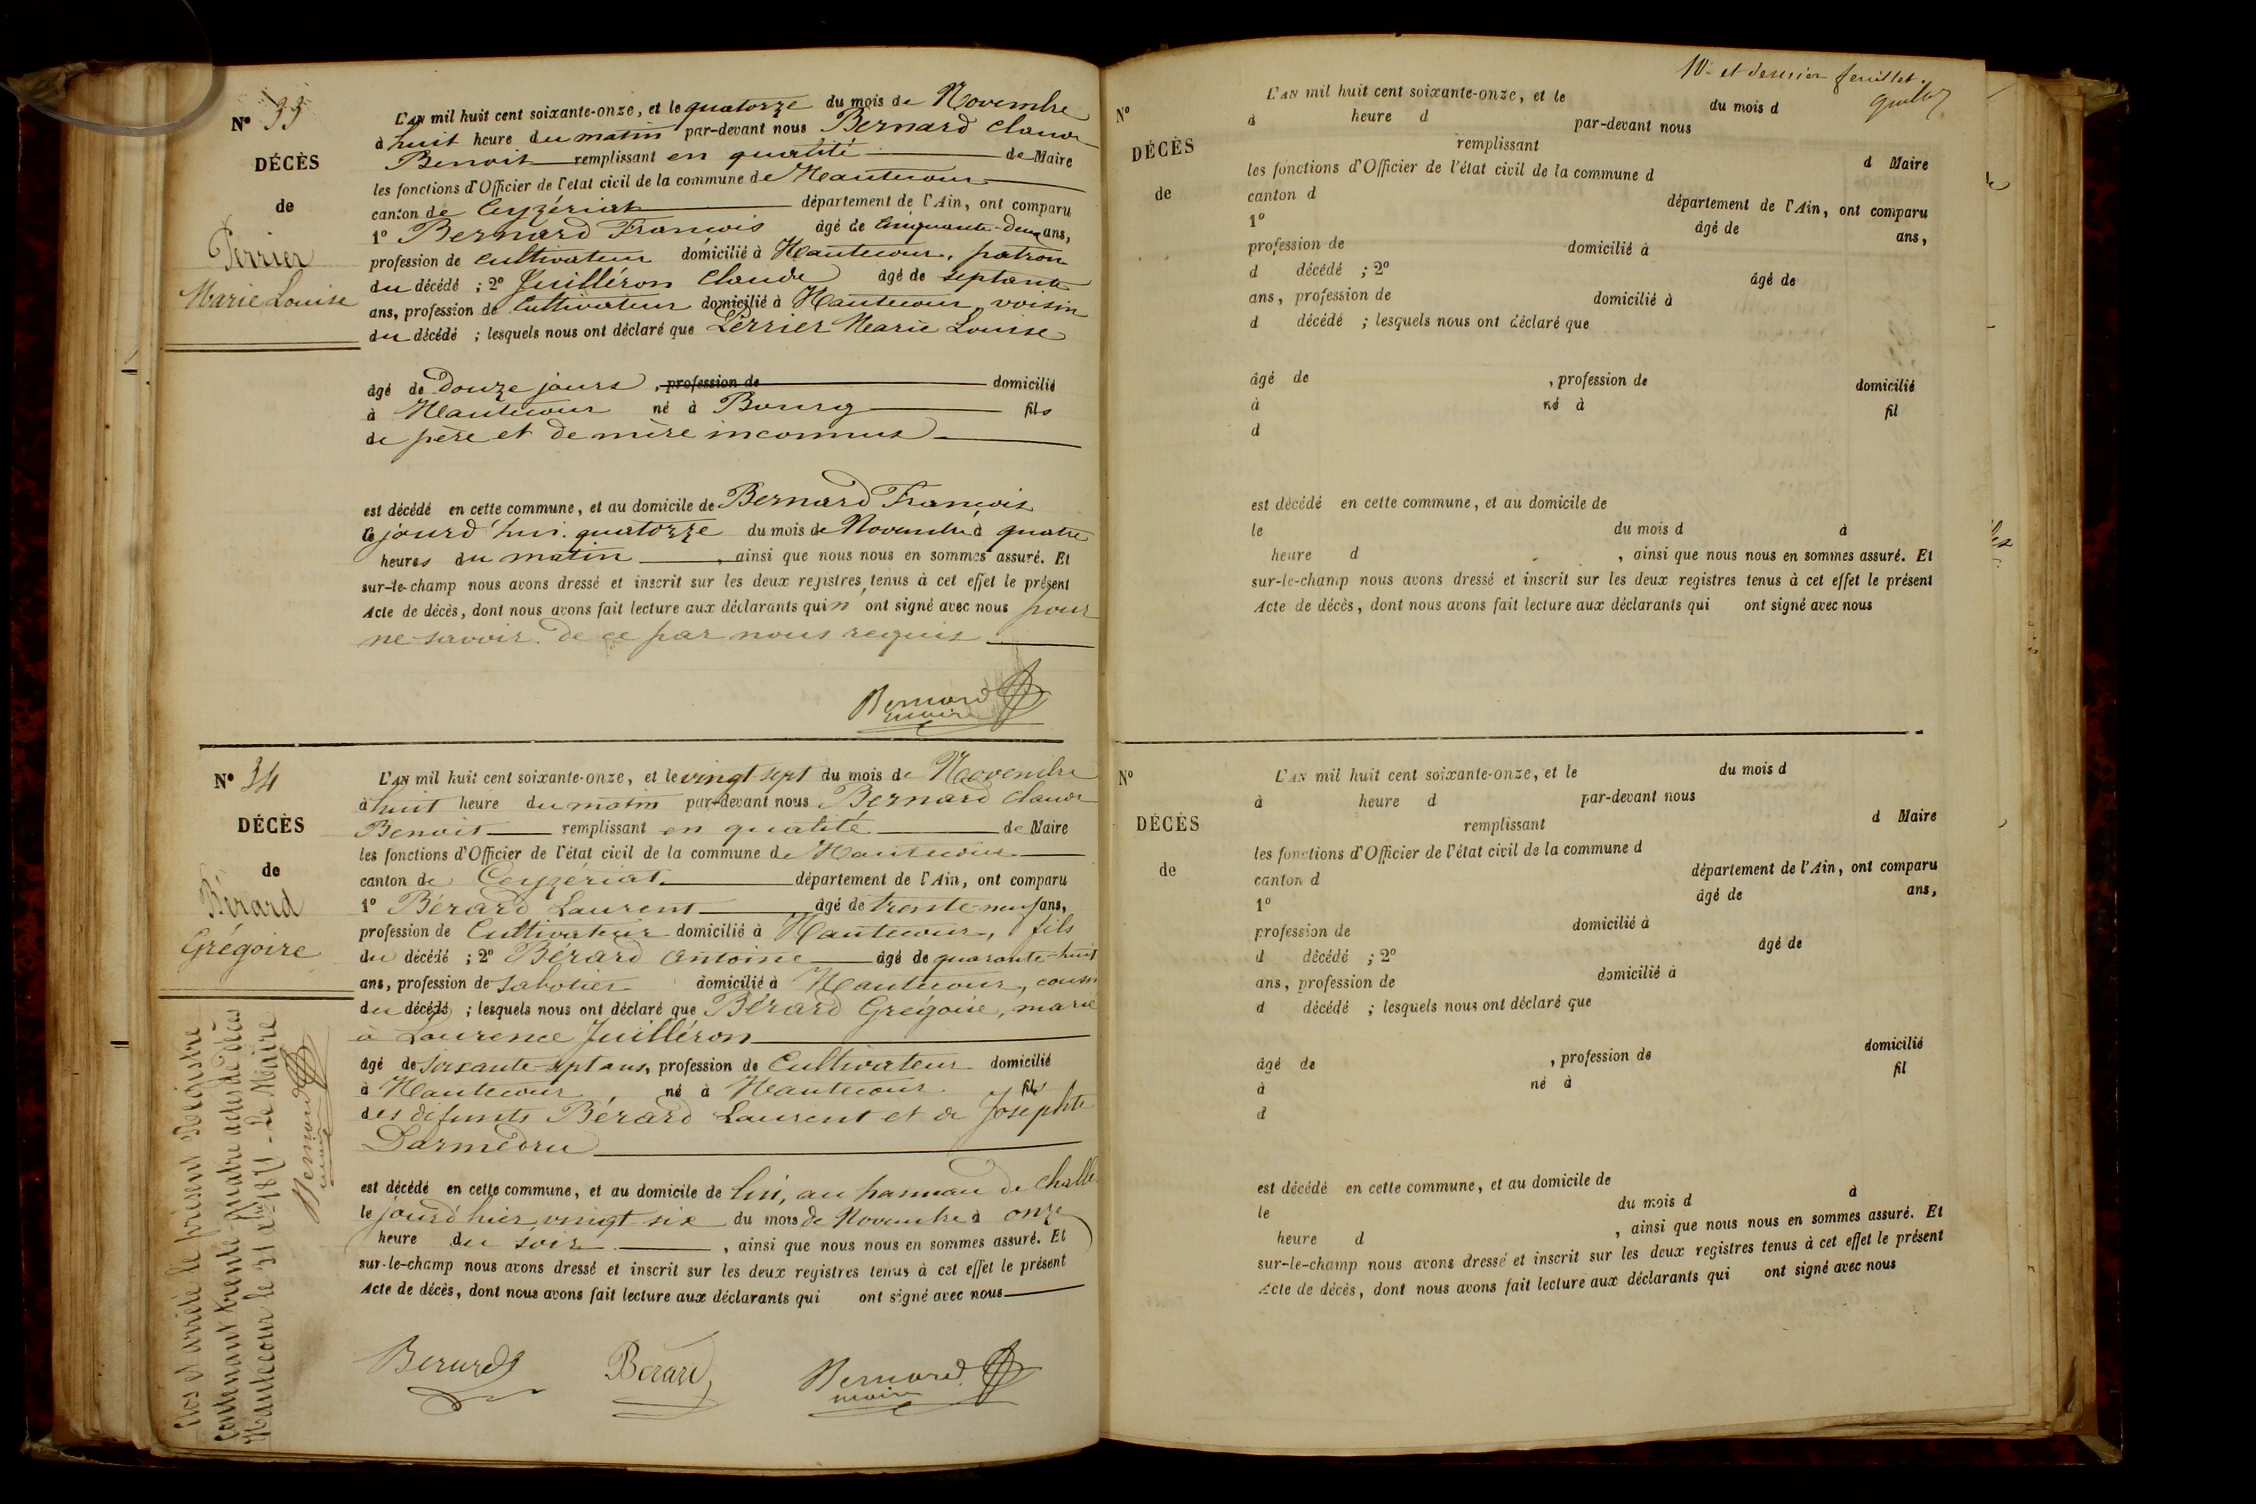 N° 33
DÉCÈS
de
Perrier
Marie Louise
L'AN mil huit cent soixante-onze, et le quatorze du mois de Novembre
à huit heure du matin par-devant nous Bernard Claude
Benoit remplissant en qualité de Maire
les fonctions d'Officier de l'état civil de la commune de Hautecour
canton de Ceyzériat département de l'Ain, ont comparu
1° Bernard François âgé de Cinquante-deux ans,
profession de Cultivateur domicilié à Hautecour, patron
du décédé ; 2° Juilléron Claude âgé de septante
ans, profession de Cultivateur domicilié à Hautecour, voisin
du décédé ; lesquels nous ont déclaré que Perrier Marie Louise
âgé de Douze jours , profession de domicilié
à Hautecour né à Bourg fils
de père et de mère inconnus
est décédé en cette commune, et au domicile de Bernard François
le jourd'hui quatorze du mois de Novembre à quatre
heures du matin , ainsi que nous nous en sommes assuré. Et
sur-le-champ nous avons dressé et inscrit sur les deux registres tenus à cet effet le présent
Acte de décès, dont nous avons fait lecture aux déclarants qui n'ont signé avec nous pour
ne savoir de ce par nous requis
Bernard
maire
N° 34
DÉCÈS
de
Bérard
Grégoire
L'AN mil huit cent soixante-onze, et le vingt sept du mois de Novembre
à huit heure du matin par-devant nous Bernard Claude
Benoit remplissant en qualité de Maire
les fonctions d'Officier de l'état civil de la commune de Hautecour
canton de Ceyzériat département de l'Ain, ont comparu
1° Bérard Laurent âgé de trente-neuf ans,
profession de Cultivateur domicilié à Hautecour, fils
du décédé ; 2° Bérard Antoine âgé de quarante-huit
ans, profession de Sabotier domicilié à Hautecour, cousin
du décédé ; lesquels nous ont déclaré que Bérard Grégoire, marié
à Laurence Juilléron
âgé de soixante-sept ans, profession de Cultivateur domicilié
à Hautecour, né à Hautecour fils
des défunts Bérard Laurent et de Josephte
Darmedru
est décédé en cette commune, et au domicile de lui, au hameau de Challe
le jourd'hier vingt six du mois de Novembre à onze
heure du soir , ainsi que nous nous en sommes assuré. Et
sur-le-champ nous avons dressé et inscrit sur les deux registres tenus à cet effet le présent
Acte de décès, dont nous avons fait lecture aux déclarants qui ont signé avec nous
Berard Bérard Bernard
maire
Clos et arrêté le présent Registre
contenant trente quatre actes de décès
Hautecour le 31 Xbre 1871 - Le Maire
Bernard
maire
10e et dernier feuillet.
N°
DÉCÈS
de
L'AN mil huit cent soixante-onze, et le du mois d
à heure d par-devant nous
remplissant d Maire
les fonctions d'Officier de l'état civil de la commune d
canton d département de l'Ain, ont comparu
1° âgé de ans,
profession de domicilié à
d décédé ; 2° âgé de
ans, profession de domicilié à
d décédé ; lesquels nous ont déclaré que
âgé de , profession de domicilié
à né à fil
d
est décédé en cette commune, et au domicile de
le du mois d à
heure d , ainsi que nous nous en sommes assuré. Et
sur-le-champ nous avons dressé et inscrit sur les deux registres tenus à cet effet le présent
Acte de décès, dont nous avons fait lecture aux déclarants qui ont signé avec nous
N°
DÉCÈS
de
L'AN mil huit cent soixante-onze, et le du mois d
à heure d par-devant nous
remplissant d Maire
les fonctions d'Officier de l'état civil de la commune d
canton d département de l'Ain, ont comparu
1° âgé de ans,
profession de domicilié à
d décédé ; 2° âgé de
ans, profession de domicilié à
d décédé ; lesquels nous ont déclaré que
âgé de , profession de domicilié
à né à fil
d
est décédé en cette commune, et au domicile de
le du mois d à
heure d , ainsi que nous nous en sommes assuré. Et
sur-le-champ nous avons dressé et inscrit sur les deux registres tenus à cet effet le présent
Acte de décès, dont nous avons fait lecture aux déclarants qui ont signé avec nous